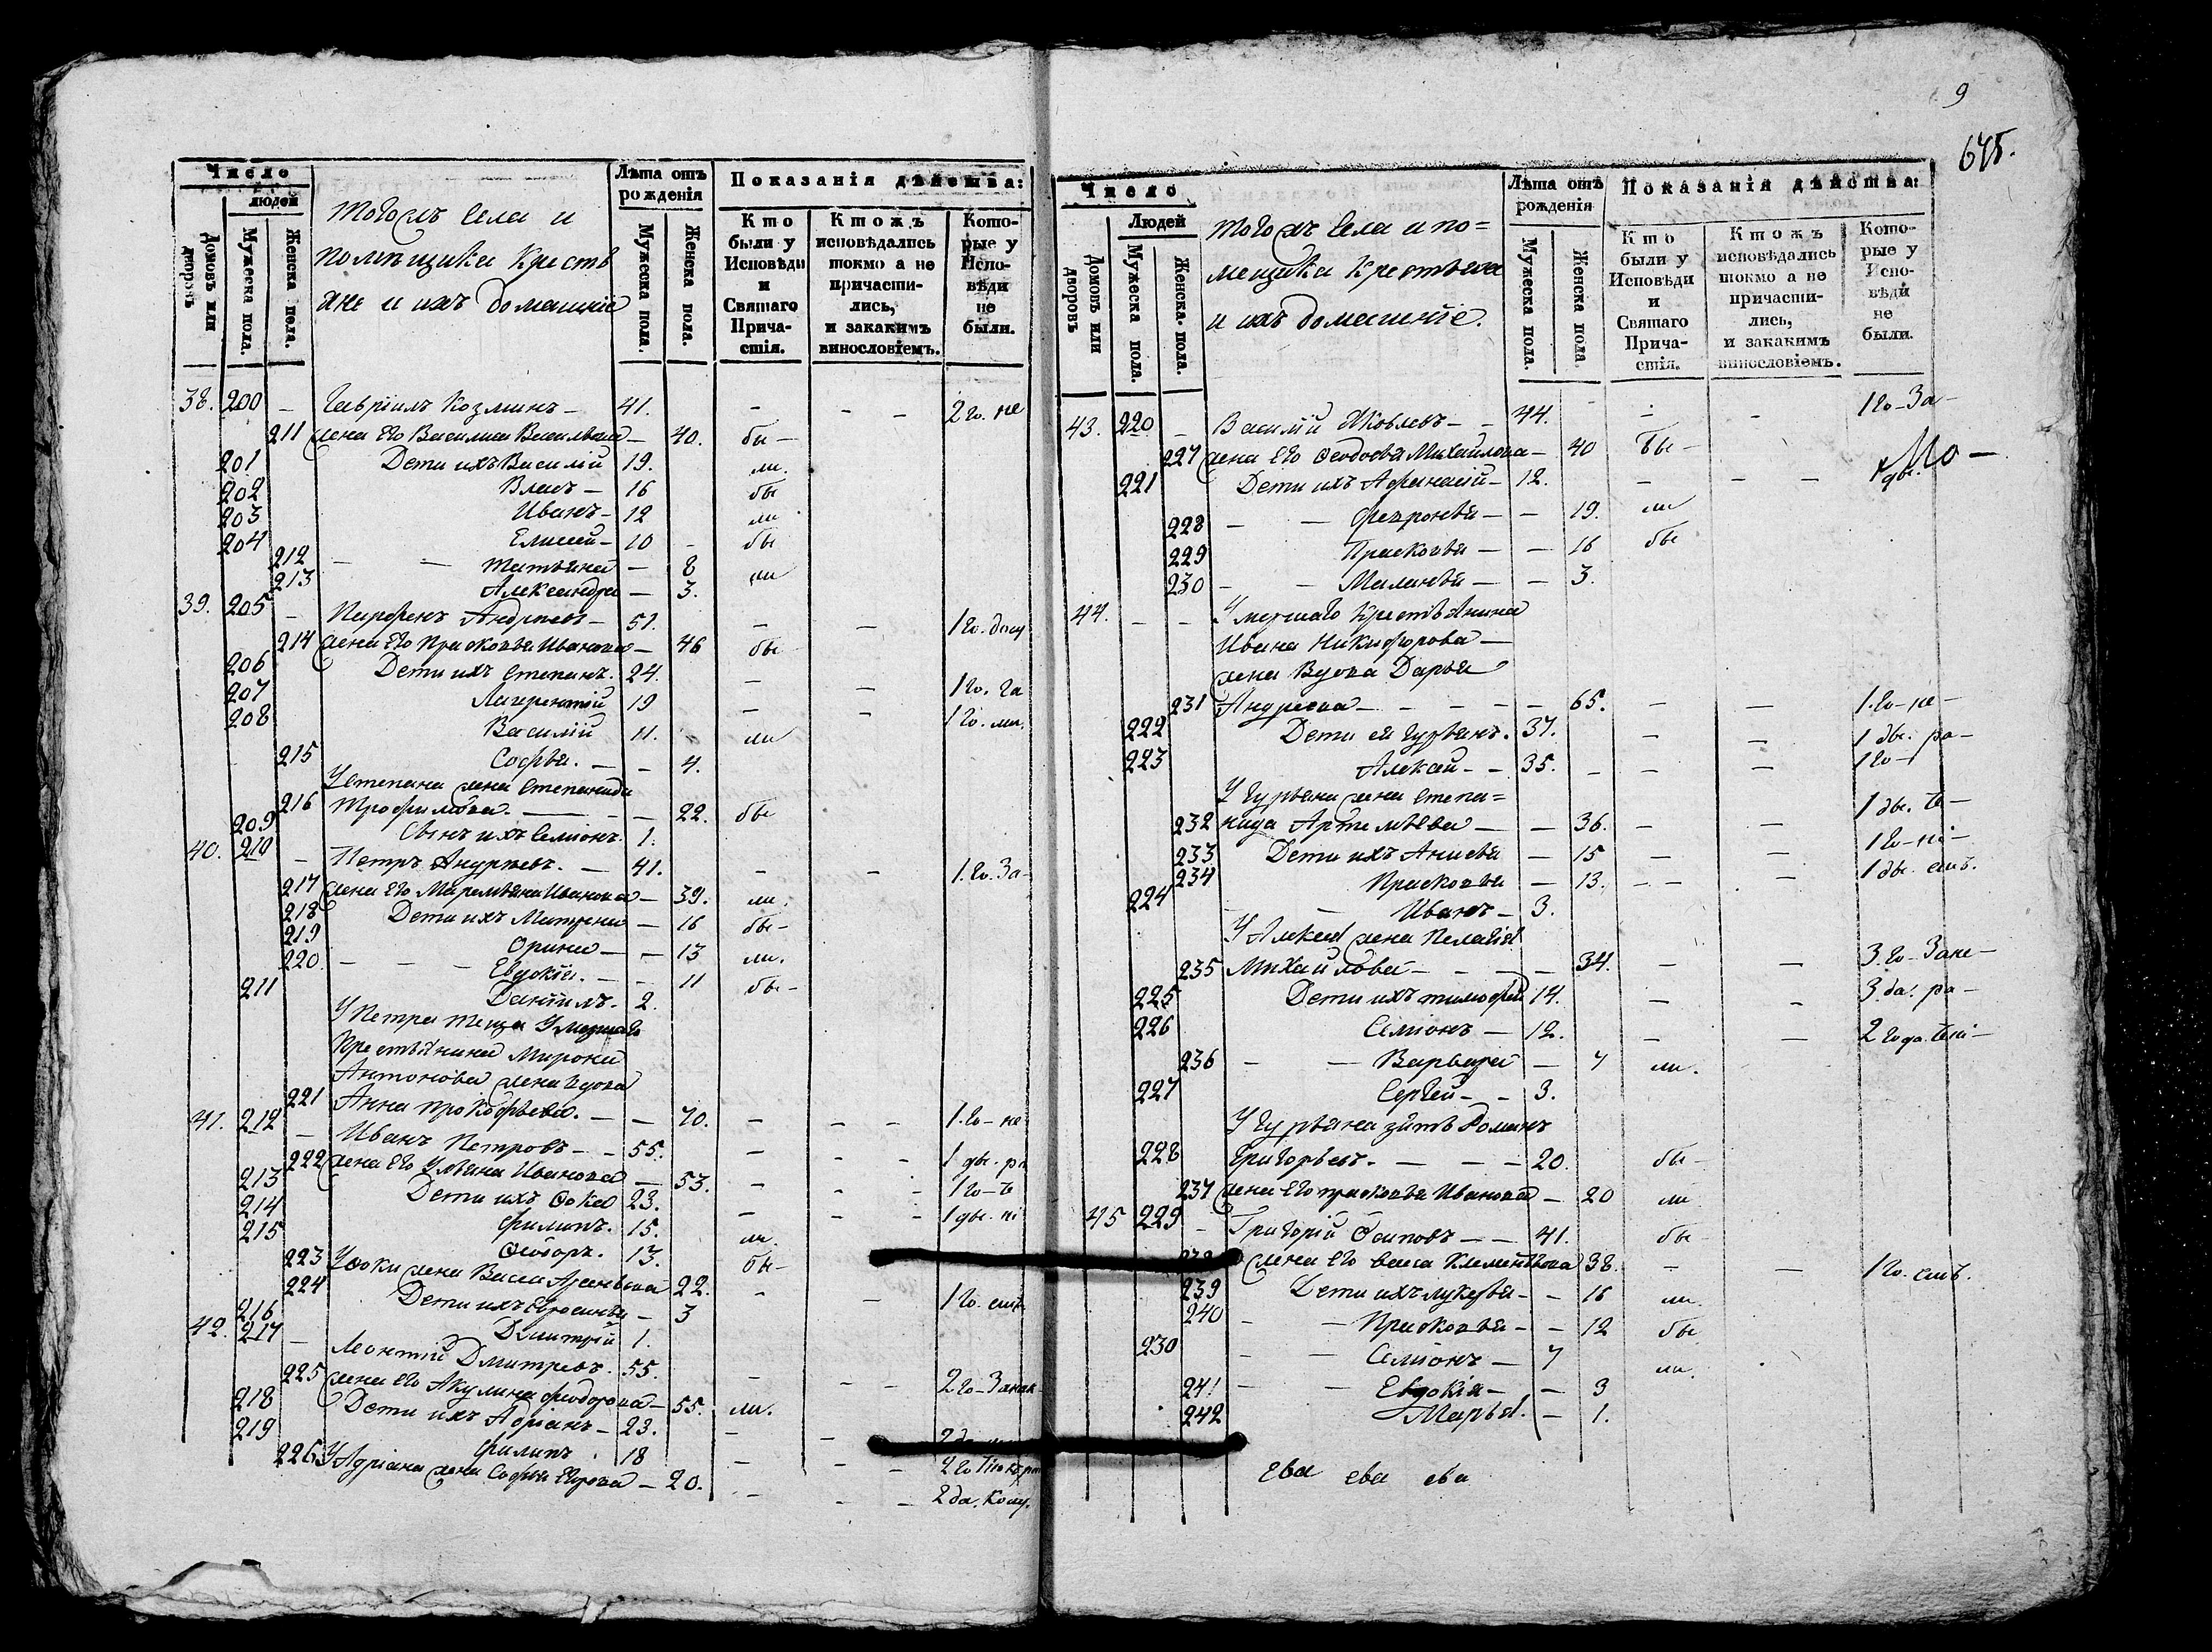 9
645.
Число
людей
Домовъ или дворовъ
Мужеска пола.
Женска пола.
тогожъ села и
помѣщика крестъ
яне и ихъ домашніе
Лѣта отъ рожденія
Мужеска пола.
Женска пола.
Показанія дѣйства:
Кто были у Исповѣди и Святаго Причастія.
Ктожъ исповѣдались токмо а не причастились, и закакимъ винословіемъ.
Которые у Исповѣди не были.
38. 200 – Гавріилъ Козминъ – 41. – – – 2 го. не
211 жена Его Василиса Васильева – 40. бы –
201 Дети ихъ Василій 19. ли.
202 Власъ – 16 бы
203 Иванъ – 12 ли
204 Елисей – 10 – бы
212 – – Татьяна – 8 ли
213 Александра – 3.
39. 205 – Парфенъ Андреевъ – 51. – – 1 го.
214 жена Его Прасковья Иванова – 46 бы
206 Дети ихъ Степанъ. 24. – – 1 го. га
207 Лаврентій 19 – – 1 го. ли.
208 Василій 11. ли
215 Софья. – – 4.
У Степана жена Степанида
216 Трофимова. – – – 22. бы
209 Сынъ ихъ Семіонъ. 1.
40. 210 – Петръ Андреевъ. – 41. – – 1. го. За –
217 жена Его Маремьяна Иванова – 39. ли.
218 Дети ихъ Матрена – 16 бы –
219 Орина – – 13 ли.
220 – – – Евдокія. – – 11 бы –
211 Даніилъ – 2.
У Петра теща Умершаго
Крестьянина Мирона
Антонова жена вдова
221 Анна Прокофьева. – – 70. – – – 1. го – не
41. 212 – Иванъ Петровъ – – 55. – – – 1 две. ра
222 жена Его Ульяна Иванова – 53. – – – 1 го – те
213 Дети ихъ Фока 23. – – – 1 две. ні
214 Филипъ. 15. ли.
215 Феодоръ. 13. бы –
223 У Фоки жена Васса 22. – – 1 го. емъ
224 Дети ихъ Ефросинья – 3
216 Дмитрій 1.
42. 217 – Леонтій Дмитревъ. 55. – – – 2 го – Занек
225 жена Его Акулина Феодорова – 55. ли.
218 Дети ихъ Адріанъ – 23. – –
219 Филипъ 18 – – – 2 го
226 У Адріана жена Софья Егорова – 20. – – – 2 да.
Число
Людей
Домовъ или дворовъ
Мужеска пола.
Женска пола.
тогожъ села и по=
мещика крестьяне
и ихъ домашніе.
Лѣта отъ рожденія
Мужеска пола.
Женска пола
Показанія дѣйства:
Кто были у Исповѣди и Святаго Причастія.
Ктожъ исповѣдались токмо а не причастились, и закакимъ винословіемъ.
Которые у Исповѣди не были.
43. 220 – Василій Яковлевъ – – 44. – – – 1 го – За –
227 жена Его Феодосья Михайлова – 40 бы –
221 Дети ихъ Афанасій – 12. – – – 1 две. Но –
228 – – Февронья – – 19. ли
229 Прасковья – – 16 бы
230 – – Маланья – – 3.
44. – – Умершаго Крестьянина
Ивана Никифорова –
жена Вдова Дарья
231 Андреева – – – – – 65. – – 1. го – не –
222 Дети ей Гурьянъ. 37. – – 1 две. ра –
223 Алексей – – 35. – – – 1 го –
У Гурьяна жена Степа=
232 нида Артемьева – – 36. – – 1 две. те –
233 Дети ихъ Анисья – 15 – – 1 го – ні –
234 Прасковья – 13. – – – 1 две. емъ.
224 – – Иванъ – 3.
У Алексея жена Пелагія
235 Михайлова – – – – 34. – – 3. го – Зане –
225 Дети ихъ Тимофей 14. – – 3. да. ра –
226 Семіонъ – 12. – – 2 года. тені –
236 – – Варвара – 7 ли.
227 Сергей – – 3.
У Гурьяна зять Романъ
228 Григорьевъ. – – – 20. бы –
237 жена Его Прасковья Иванова – 20 ли
45 229 – Григорій Осиповъ – – 41. бы –
жена Его Васса Клементьева 38. – – 1 го. емъ.
239 Дети ихъ Лукерья – – 16 ли.
240 – – Прасковья – – 12 бы
230 – – Семіонъ – 7 ли.
241 – – Евдокія – – 3
242 Марья. – 1.
ева ева ева